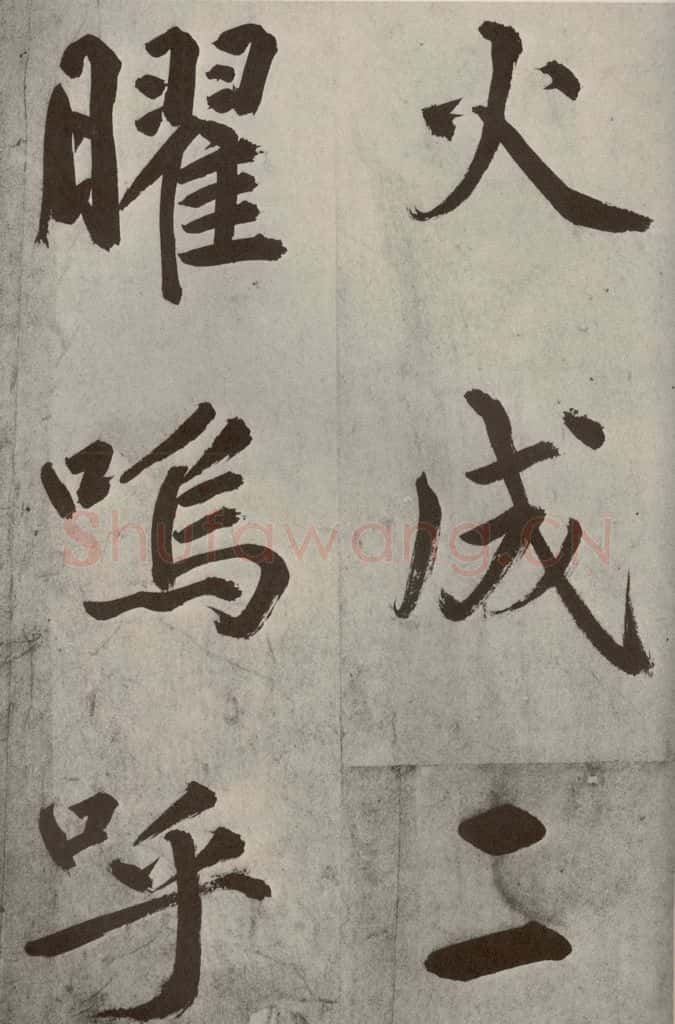 火成二
曜嗚呼
Shufawang.CN